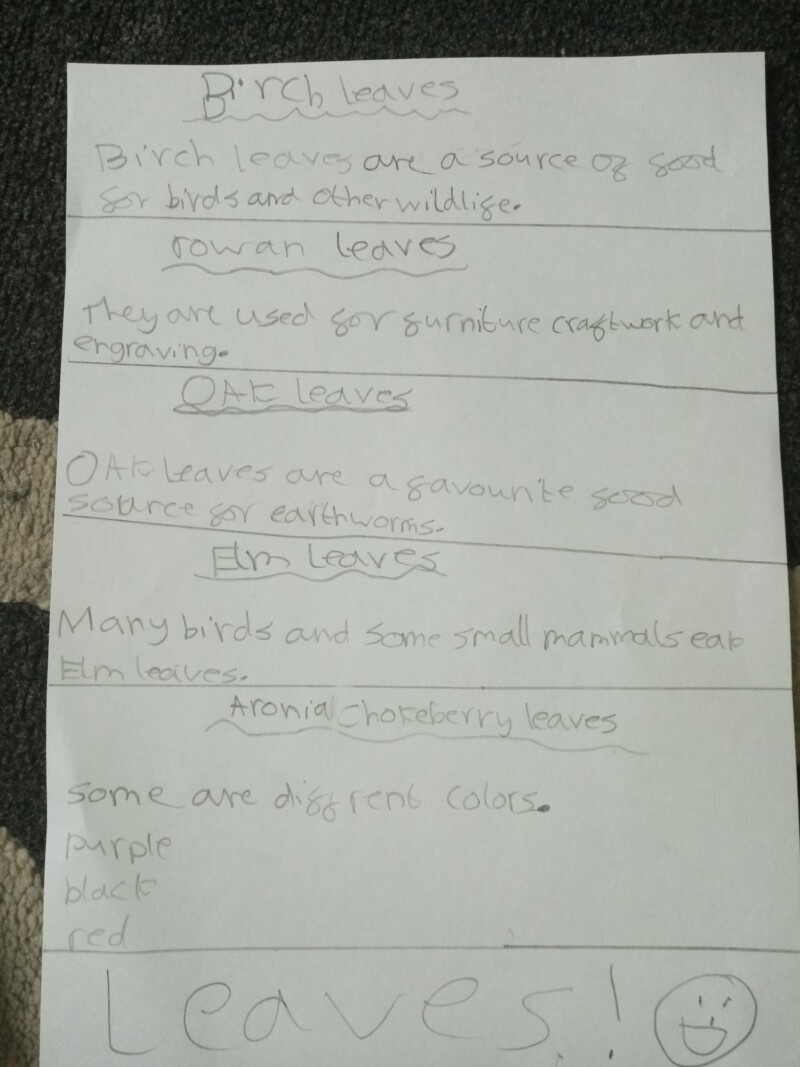 Birch leaves
Birch leaves are a source of food
for birds and other wildlife.
rowan leaves
They are used for furniture craftwork and
engraving.
OAK leaves
OAK leaves are a favourite food
source for earthworms.
Elm leaves
Many birds and some small mammals eat
Elm leaves.
Aronia chokeberry leaves
some are diffrent colors.
purple
black
red
Leaves!